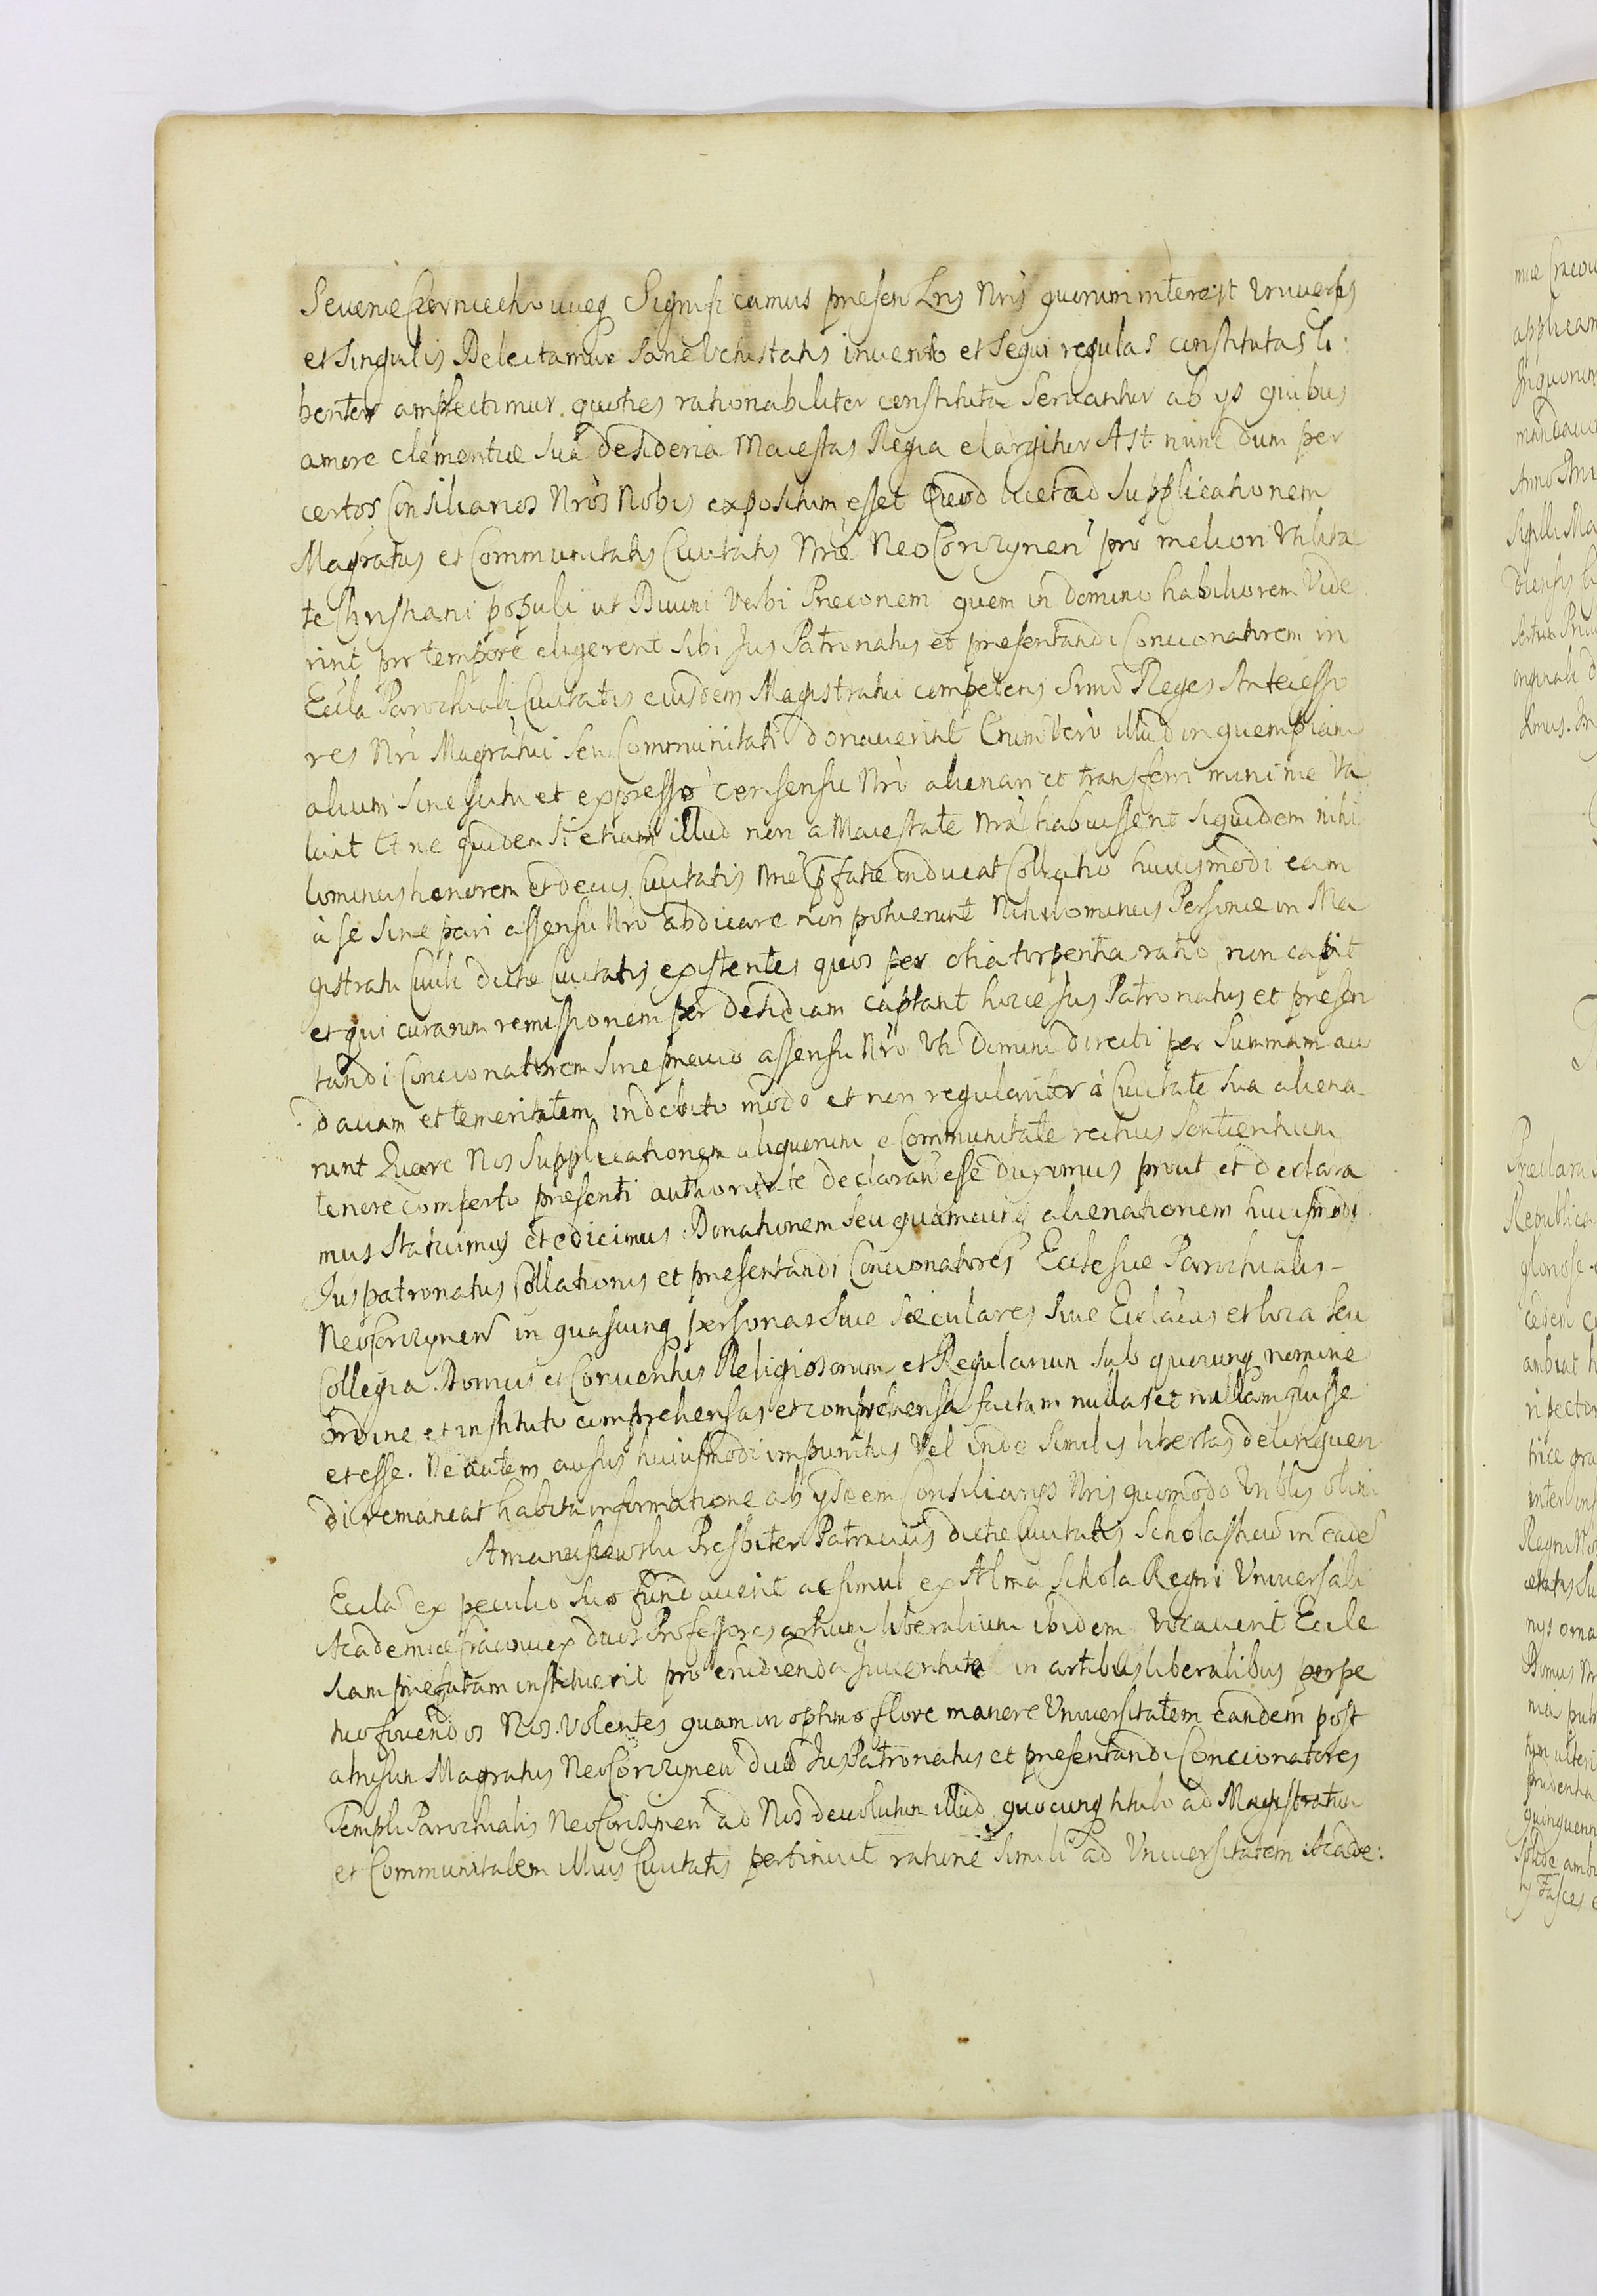 Seueriæ Czerniechovueq Significamus presen Lris Nris quorum interest Vniuersis
et Singulis Delectamur sane Vetustatis inuento et sequi regulas constitutas li:
benter amplectimur quoties rationabiliter constitutæ seruantur ab ys quibus
amore clementiæ suæ desideria Maiestas Regia elargitur Ast nunc dum per
certos Consiliarios Nros Nobis expositum esset Quod licet ad Supplicationem
Magratus et Communitatis Ciuitatis Nræ NeoCorczynen pro meliori Vtilita
te Christiani populi ut Diuini Verbi Preconem quem in domino habiliorem Vide
rint pro tempore eligerent sibi Jus Patronatus et presentandi Concionatorem in
Eccla Parochiali Ciuitatis eiusdem Magistratui competens Srmi Reges Antecesso
res Nri Magratui seu Communitati donauerint Enim Vero illud in quempiam
alium sine scitu et expresso consensu Nro alienari et transferri minime Va
luit Et ne quidem si etiam illud non a Maiestate Nra habuissent siquidem nihi
lominus honorem et decus Ciuitatis Nræ pfatæ inducat Collatio huiusmodi eam
à se sine pari assensu Nro abdicare non potuerunt Nihilominus Personæ in Ma
gistratu Ciuili dictæ Ciuitatis existentes quos per otia torpentia ratio non capit
et qui curarum remissionem per desidiam captant hocce Jus Patronatus et presen
tandi Concionatorem sine preuio assensu Nro Vti Domini directi per Summam au
daciam et temeritatem indebito modo et non regulariter à Ciuitate sua aliena
runt Quare Nos Supplicationem aliquorum e Communitate rectius Sentientium
tenore comperto presenti authoritate declaran esse duximus prout et declara
mus Statuimus et edicimus Donationem seu quamcunq alienationem huiusmodi
Juspatronatus Collationis et presentandi Concionatores Ecclesiæ Parochialis
NeoCorczynen in quascunq personas siue sæculares siue Ecclacas et loca seu
Collegia Domus et Conuentus Religiosorum et Regularium sub quocunq nomine
ordine et instituto comprehensas et comprehensa factam nullas et nullam fuisse
et esse. Ne autem ausus huiusmodi impunitus Vel inde similis libertas delinquen
di remaneat habita informatione ab ysdem Consiliarijs Nris quomodo Vrblis olim
Presbiter Patricius dictæ Ciuitatis Scholasticu in eade
Eccla ex peculio suo fundauerit ac simul ex Alma Schola Regni Vniuersali
Academiæ Cracouiex duos Professores artium liberalium ibidem Vocauerit Eccle
siam prefatam instituerit pro erudienda Juuentute in artibus liberalibus perpe
tuo fouendos Nos Volentes quam in optimo flore manere Vniuersitatem eandem post
Magratus NeoCorczynen dictû JusPatronatus et presentandi Concionatores
Templi Parochialis NeoCorczynen ad Nos deuolutum illud quocunq titulo ad Magistratum
et Communitatem illius Ciuitatis pertinuit ratione simili ad Vniuersitatem Acade: